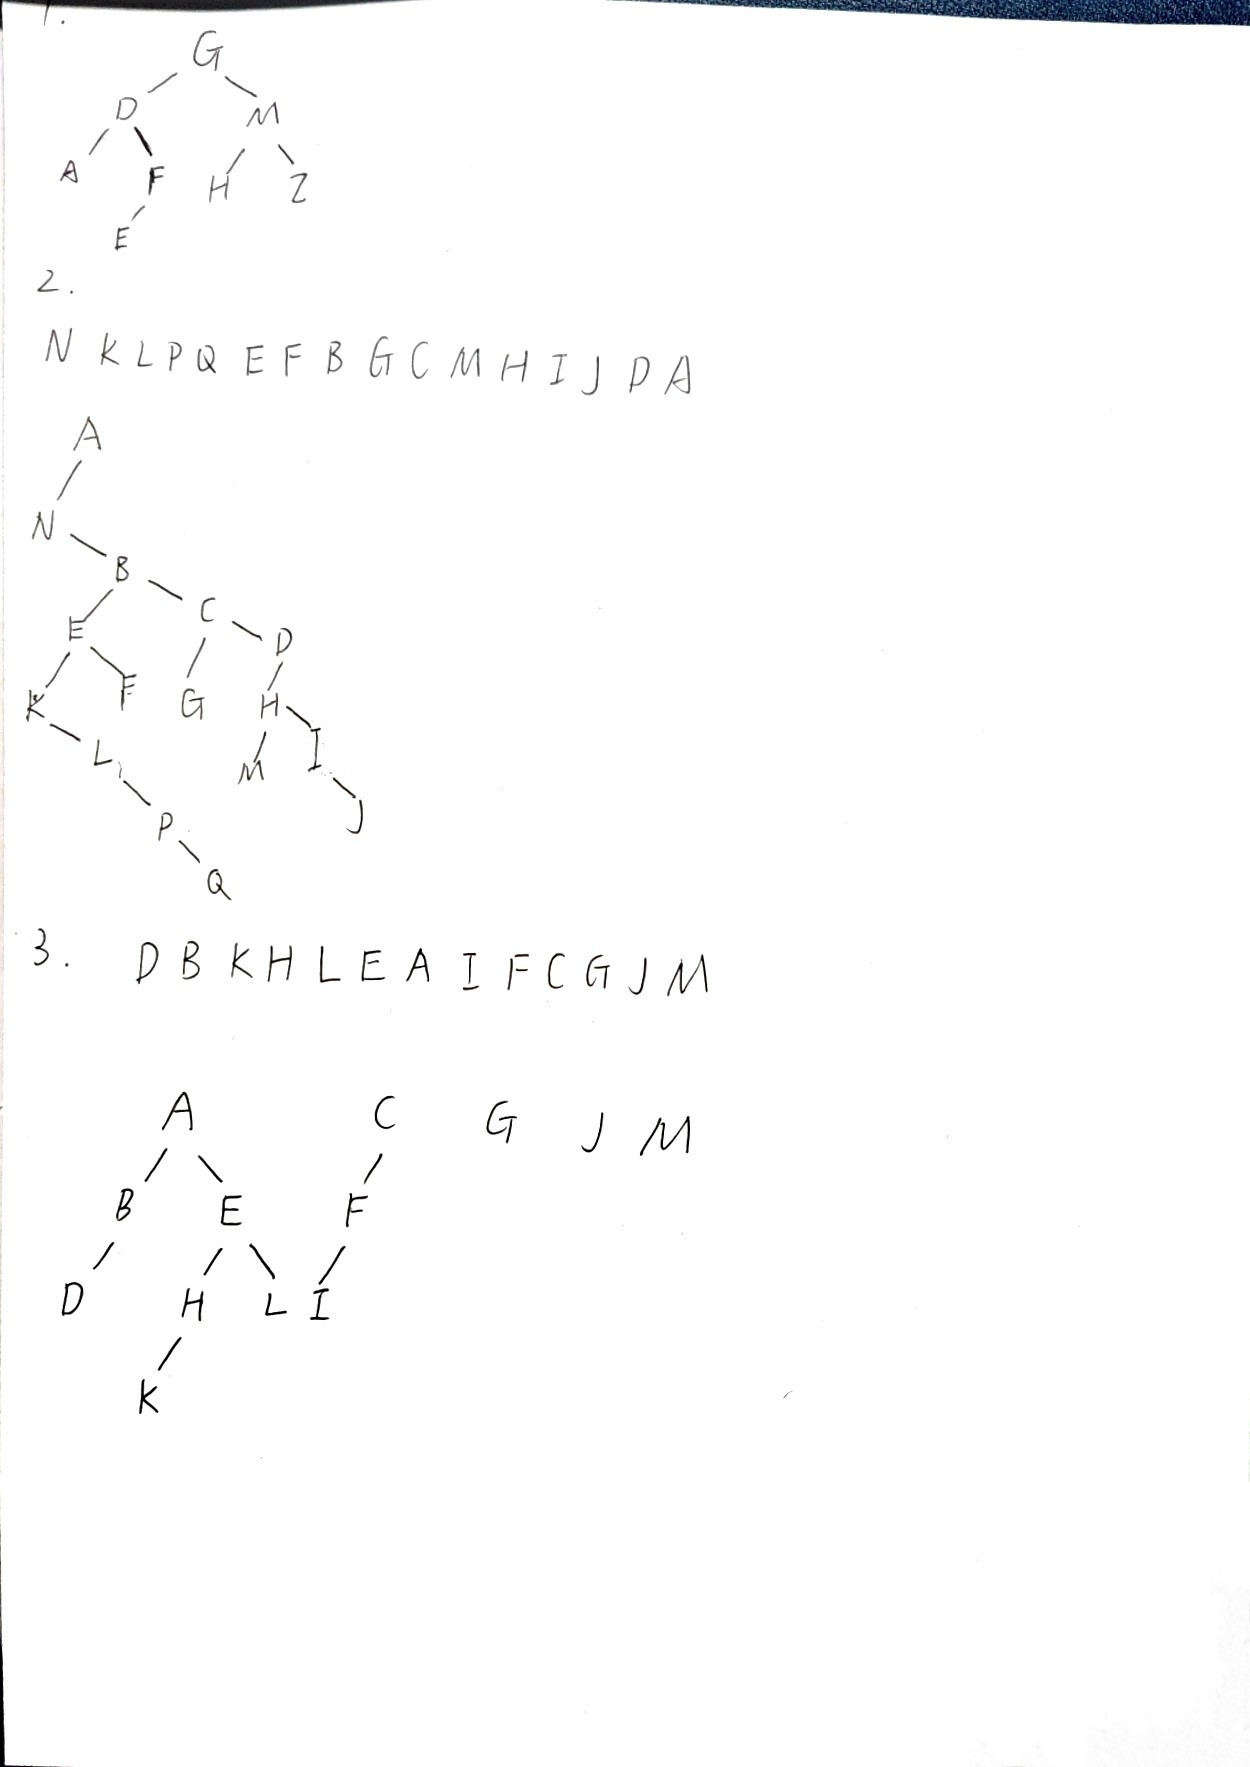 1.
G
D M
A F H Z
E
2.
N K L P Q E F B G C M H I J D A
A
N
B
C
E D
K F G H
L M I
P J
Q
3. D B K H L E A I F C G J M
A C G J M
B E F
D H L I
K